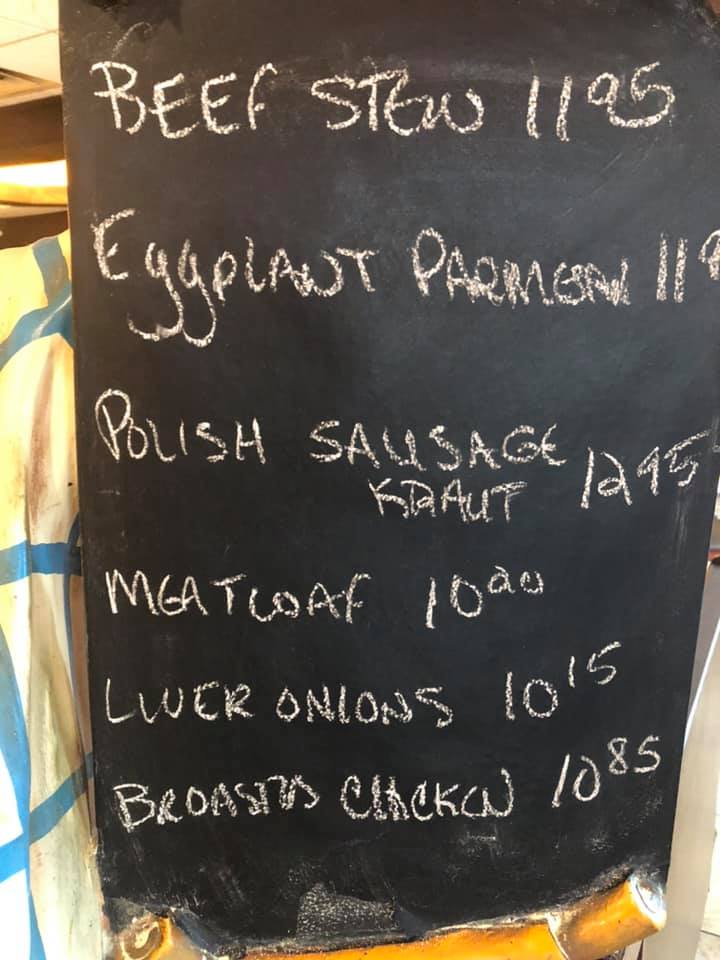 BEEF STEW 1195
EggPLANT PARMGEAN 119
POLISH SAUSAGE
KRAUT 1295
MEATLOAF 1020
LIVER ONIONS 1015
BROASTED CHICKEN 1085